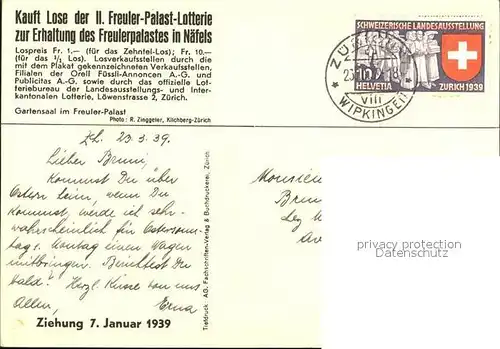 Kauft Lose der II. Freuler-Palast-Lotterie
zur Erhaltung des Freulerpalastes in Näfels
Lospreis Fr. 1.— (für das Zehntel-Los); Fr. 10.—
(für das 1/1 Los). Losverkaufsstellen durch die
mit dem Plakat gekennzeichneten Verkaufsstellen,
Filialen der Orell Füssli-Annoncen A.-G. und
Publicitas A.-G. sowie durch das offizielle Lot-
teriebureau der Landesausstellungs- und Inter-
kantonalen Lotterie, Löwenstrasse 2, Zürich.
Gartensaal im Freuler-Palast
Photo: R. Zinggeler, Kilchberg-Zürich
SCHWEIZERISCHE LANDESAUSSTELLUNG
HELVETIA ZÜRICH 1939
VIII
WIPKINGEN
Zch. 23.3.39.
Lieber Benni,
Kommst Du über
Ostern heim, wenn Du
kommst, werde ich sehr
wahrscheinlich für Ostersonn-
tag & Montag einen Wagen
mitbringen. Berichtest Du
bald? Herzl. Küsse von uns
Allen, Erna
Ziehung 7. Januar 1939
Tiefdruck AG. Fachschriften-Verlag & Buchdruckerei, Zürich
Monsieur
privacy protection
Datenschutz